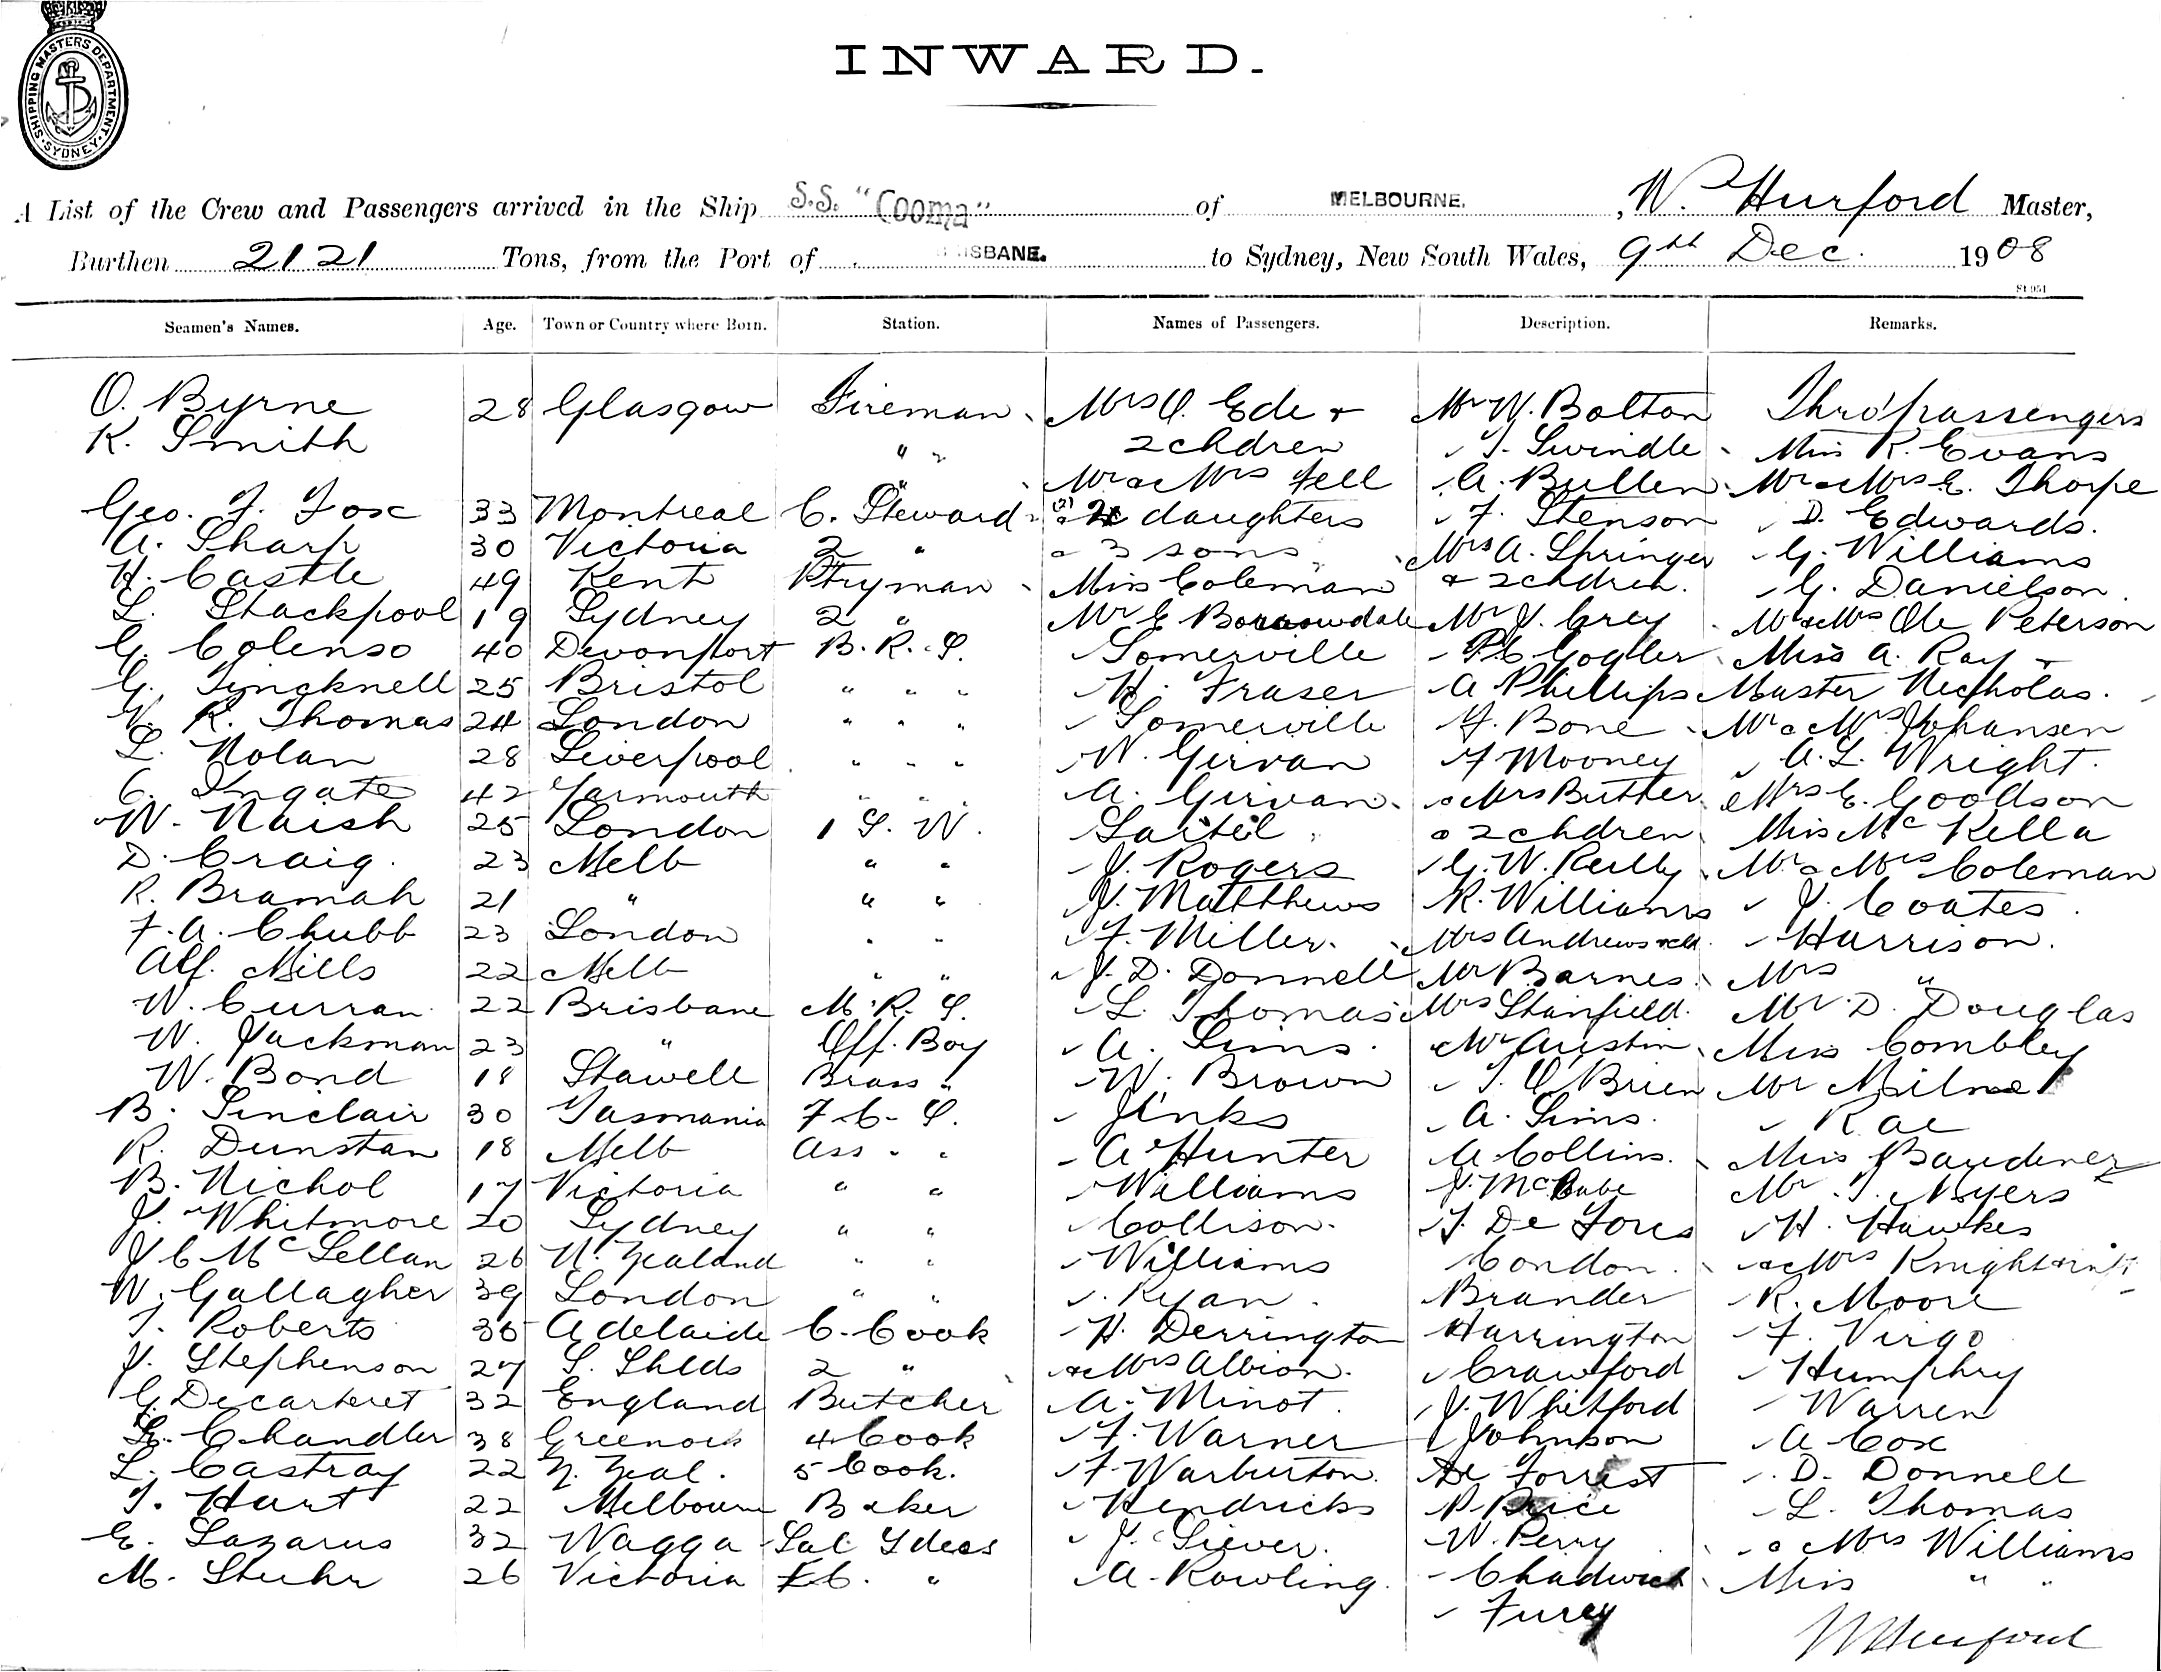 SHIPPING MASTERS DEPARTMENT. SYDNEY.
INWARD.
A List of the Crew and Passengers arrived in the Ship S.S. "Cooma" of MELBOURNE. W. Hurford Master,
Burthen 2121 Tons, from the Port of BRISBANE. to Sydney, New South Wales, 9th Dec. 1908
Seamen's Names. Age. Town or Country where Born. Station. Names of Passengers. Description. Remarks.
O. Byrne 28 Glasgow Fireman Mrs O. Ede + Mr W. Bolton Thro' passengers
K. Smith " " 2 chdren T. Swindle Miss R. Evans
" Mr & Mrs Fell A. Bullen Mr & Mrs E. Thorpe
Geo. F. Fox 33 Montreal C. Steward (2) daughters F. Stenson D. Edwards.
A. Sharp 30 Victoria 2 " & 3 sons Mrs A. Springer G. Williams
H. Castle 49 Kent Ptryman Miss Coleman & 2 chdren. G. Danielson.
L. Stackpool 19 Sydney 2 " Mr E Borrowdale Mr J. Grey Mr & Mrs Ole Peterson
G. Colenso 40 Devonport B. R. S. Somerville P.C Gogler Miss A. Ray +
G. Tincknell 25 Bristol " " " H. Fraser A Phillips Master Nicholas.
W. R. Thomas 24 London " " " Somerville F. Bone Mr & Mrs Johansen
L. Nolan 28 Liverpool " " " W. Girvan F Mooney A. L. Wright.
C. Ingate 42 Yarmouth " " " A. Girvan. & Mrs Butter Mrs E. Goodson
W. Naish 25 London 1 S. W. Laitel & 2 chdren Miss Mc Kella
D. Craig. 23 Melb " " J. Rogers G. W. Reilly Mr & Mrs Coleman
R. Bramah 21 " " " J. Matthews R. Williams J. Coates.
F. A. Chubb 23 London " " F. Miller. Mrs Andrews & chd. Harrison.
Alf. Mills 22 Melb " " J. D. Donnell Mr Barnes. Mrs "
W. Curran 22 Brisbane M. R. S. L. Thomas Mrs Stanfield. Mr D. Douglas
W. Jackman 23 " Off. Boy A. Sims. Mr Austin Miss Combley
W. Bond 18 Stawell Brass " W. Brown T. O Brien Mr Milne
B. Sinclair 30 Tasmania F. C. S. Jinks A. Sims. Rae
R. Dunstan 18 Melb Ass " " A Hunter A. Collins. Miss
B. Nichol 17 Victoria " " Williams J. McCabe Mr T. Myers
J. Whitmore 20 Sydney " " Collison. T. De H. Hawkes
J C Mc Lellan 26 N. Zealand " " Williams Condon. & Mrs Knight
W. Gallagher 39 London " " Ryan. Brander R. Moore
T. Roberts 36 Adelaide C. Cook H. Derrington Harrington F. Virgo
J. Stephenson 27 S. Shlds 2 " & Mrs Albion. Crawford Humphry
G. Decarteret 32 England Butcher A. Minot. J. Whitford Warren
Chandler 38 Greenock 4 Cook F. Warner Johnson A Cox
L. Castray 22 N. Zeal. 5 Cook. F. Warburton. De Forrest D. Donnell
T. Hart 22 Melbourne Baker Hendricks P. Price L. Thomas
E. Lazarus 32 Wagga Sal Ydess J. Siever. W. Perry & Mrs Williams
M. Stuhr 26 Victoria F.C. " A. Rowling. Chadwick Miss " "
Furey
W Hurford